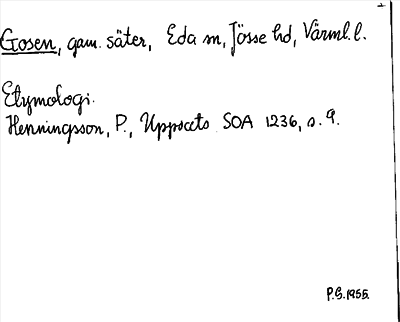 Gosen, gam. säter, Eda sn, Jösse hd, Värml. l.
Etymologi.
Henningsson, P., Uppsats SOA 1236, s. 9.
P.G. 1955.